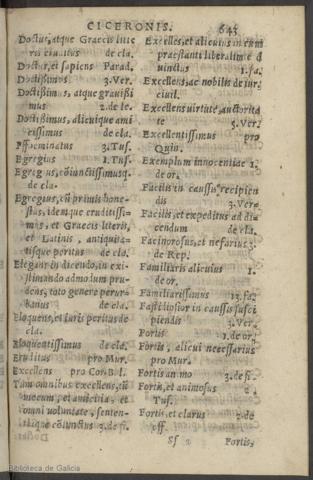 CICERONIS. 643
Doctus, atque Graecis lite
ris eruditus de cla.
Doctor, et sapiens Parad.
Doctissimus 3. Ver.
Doctissimus, atque gravissi
mus 2. de le.
Doctissimus, alicuique ami
cissimus de cla.
Effœminatus 3. Tus.
Egregius 1. Tus.
Egregius, cōiunctissimusq.
de cla.
Egregius, cū primis hone-
stus, idemque eruditissi-
mus, et Graecis literis,
et Latinis, antiquita-
tisque peritus de cla.
Elegans in dicendo, in exi-
stimando admodum pru-
dens, toto genere perur-
banus de cla.
Eloquens, et iuris peritus de
cla.
Eloquentissimus de cla.
Eruditus pro Mur.
Excellens pro Cor. B. l.
Tam omnibus excellens, cū
mecum, et amicitia, et
omni voluntate, senten-
tiique cōiunctus 3. de fi.
Excellēs, et alicuius in eum
praestanti liberalitate d
uinctus 1. fa.
Excellens, ac nobilis de iur.
ciuil.
Excellens virtute, auctorita
te 3. Ver.
Excellentissimus pro
Quin.
Exemplum innocentiae 1.
de or.
Facilis in caussis recipien
dis 3. Ver.
Facilis, et expeditus ad di-
cendum de cla.
Facinorosus, et nefarius 3.
de Rep.
Familiaris alicuius 1.
de or.
Familiarissimus 13. fa.
Fastidiosior in caussis susci
piendis 3. Ver.
Fortis 1. de or.
Fortis, alicui necessarius
pro Mur.
Fortis animo 3. de fi.
Fortis, et animosus 2.
Tus.
Fortis, et clarus 2. de
off.
Sf 2 Fortis,
Biblioteca de Galicia